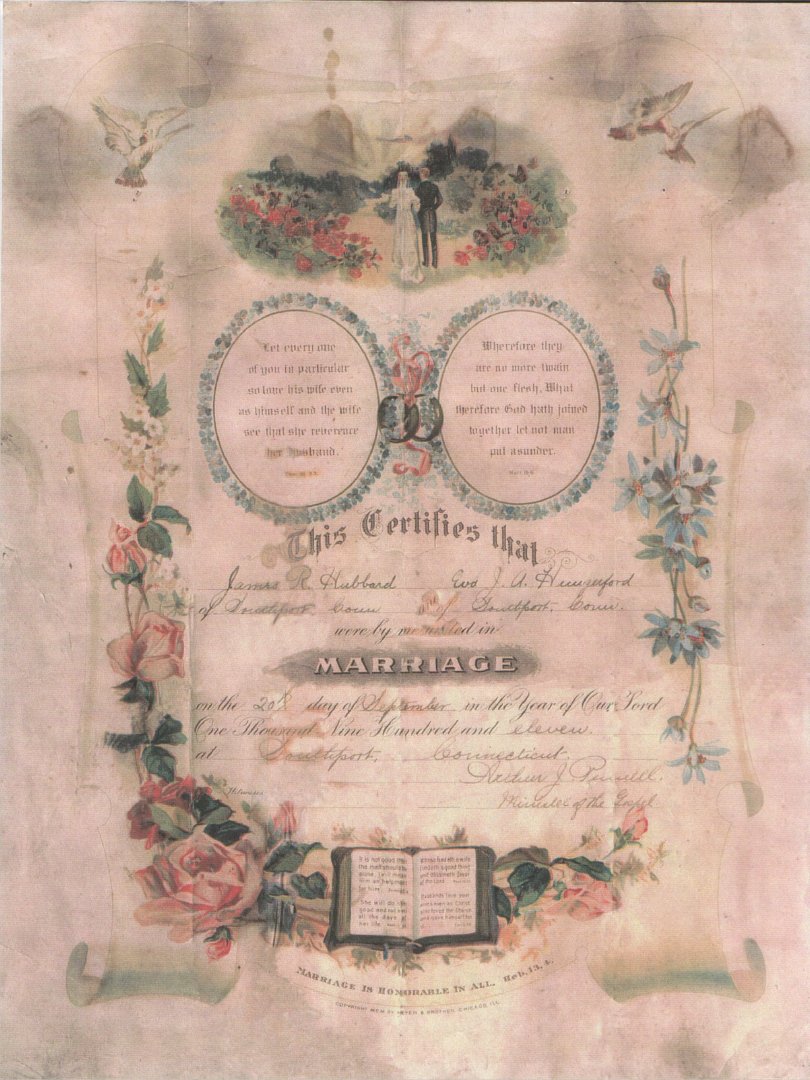 Let every one
of you in particular
so love his wife even
as himself and the wife
see that she reverence
her husband.
Wherefore they
are no more twain
but one flesh. What
therefore God hath joined
together let not man
put asunder.
This Certifies that
James R. Hubbard Eva J. A. Hungerford
of Southport Conn of Southport, Conn.
were by me united in
MARRIAGE
on the 20th day of September in the Year of Our Lord
One Thousand Nine Hundred and eleven.
at Southport, Connecticut.
Arthur J.
Minister of the Gospel
Witnesses
It is not good that
the man should be
alone, I will make
him an help meet
for him.
She will do him
good and not evil
all the days of
her life.
Whoso findeth a wife
findeth a good thing
and obtaineth favor
of the Lord.
Husbands love your
wives even as Christ
also loved the Church
and gave himself for
it.
MARRIAGE IS HONORABLE IN ALL. Heb. 13, 4.
COPYRIGHT MCM BY MEYER & BROTHER, CHICAGO, ILL.